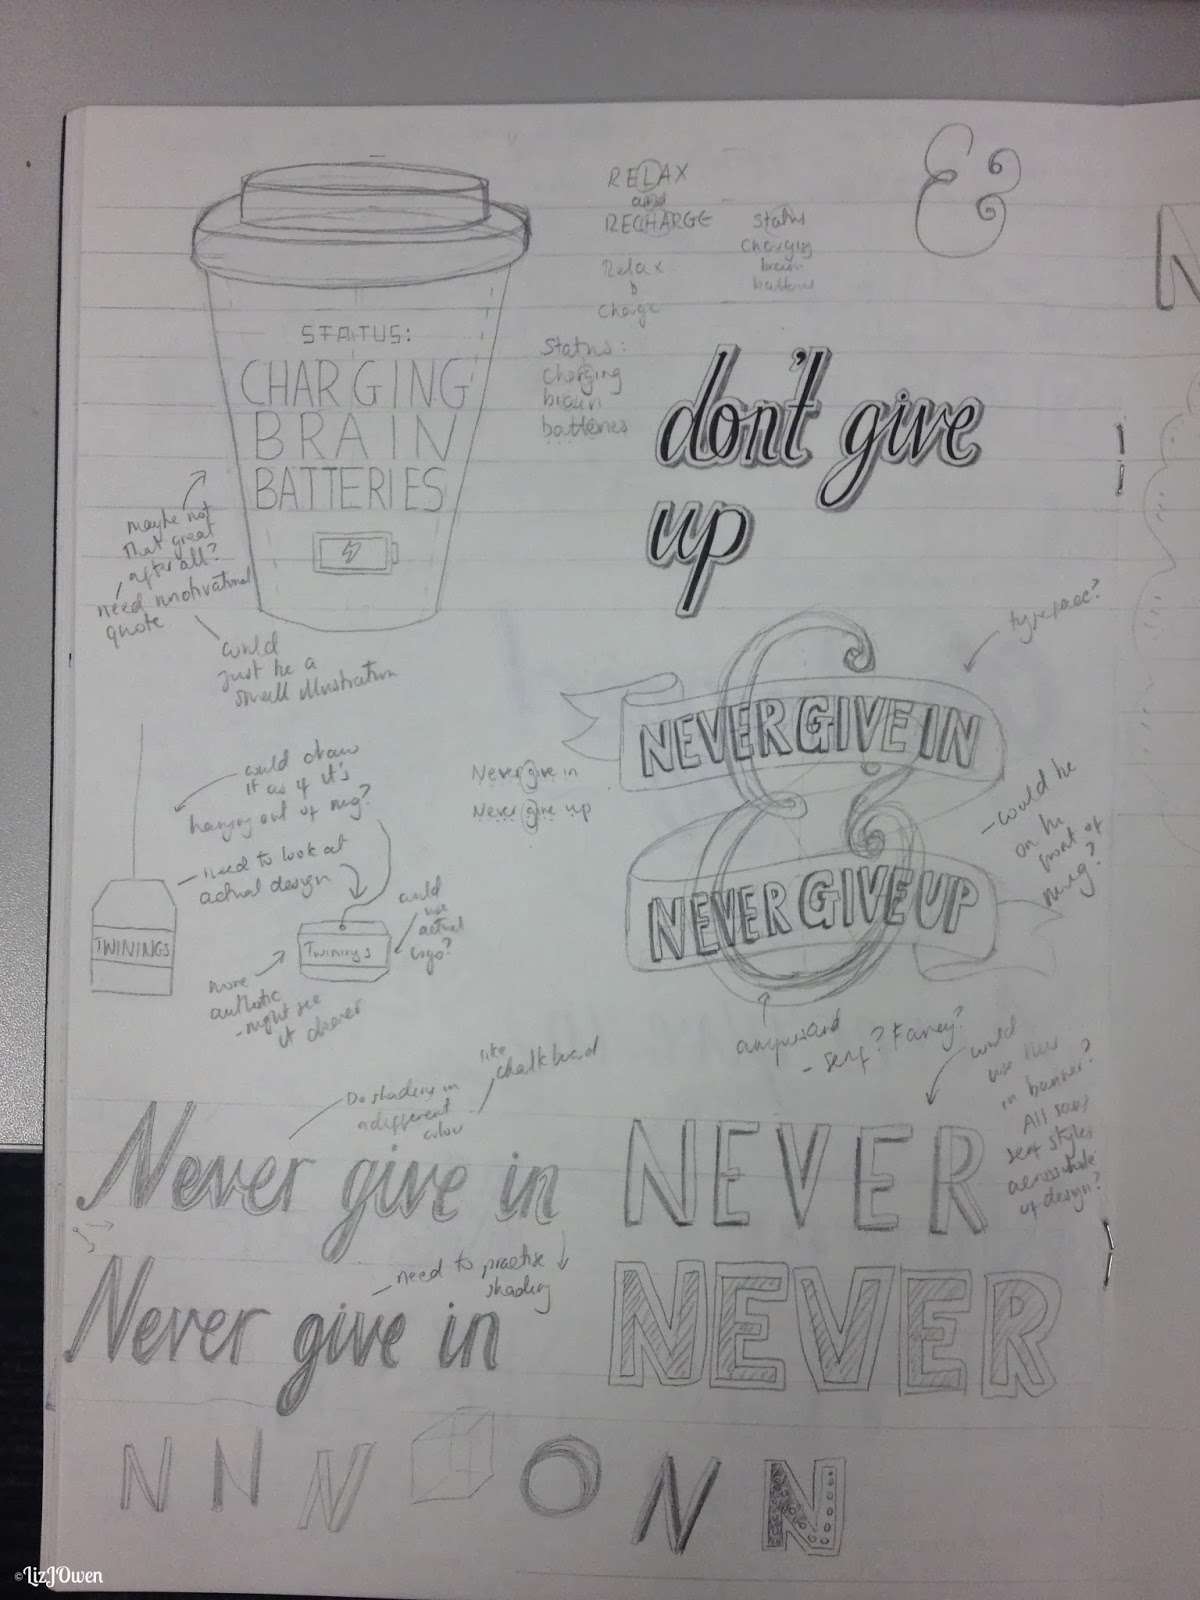 RELAX
and
RECHARGE
Relax
&
Charge
Status
charging
brain
batteries
&
N
STATUS:
CHARGING
BRAIN
BATTERIES
Status:
charging
brain
batteries
don't give
up
maybe not
that great
after all?
need motivational
quote
could
just be a
small illustration
typeface?
NEVER GIVE IN
&
NEVER GIVE UP
Never give in
Never give up
could be
on the
front of
mug?
could draw
it as if it's
hanging out of mug?
need to look at
actual design
TWININGS
Twinings
could
use
actual
logo?
more
authentic
- might see
it clearer
ampersand
- serif? Fancy?
could
use this
in banner?
All sans
serif styles
across whole
of design?
Do shading in
a different
colour
like
chalkboard
Never give in
NEVER
need to practise
shading
Never give in
NEVER
N N N N N
©LizJOwen